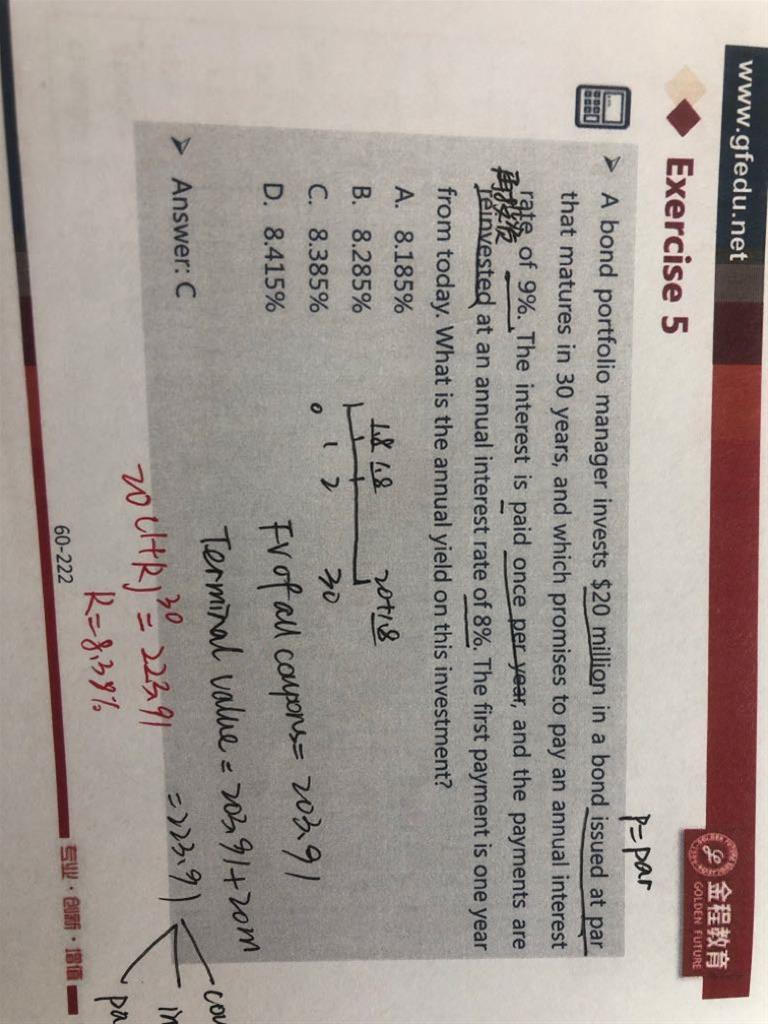 www.gfedu.net
金程教育
GOLDEN FUTURE
Exercise 5
P=par
➤ A bond portfolio manager invests $20 million in a bond issued at par
that matures in 30 years, and which promises to pay an annual interest
rate of 9%. The interest is paid once per year, and the payments are
再投资
reinvested at an annual interest rate of 8%. The first payment is one year
from today. What is the annual yield on this investment?
A. 8.185%
B. 8.285%
C. 8.385%
D. 8.415%
1.8 1.8 20+1.8
0 1 2 30
FV of all coupons = 203.91
➤ Answer: C
Terminal value = 203.91+20M
=223.91
cou
in
pa
20(1+R)^30 = 223.91
R=8.39%
60-222
专业·创新·增值